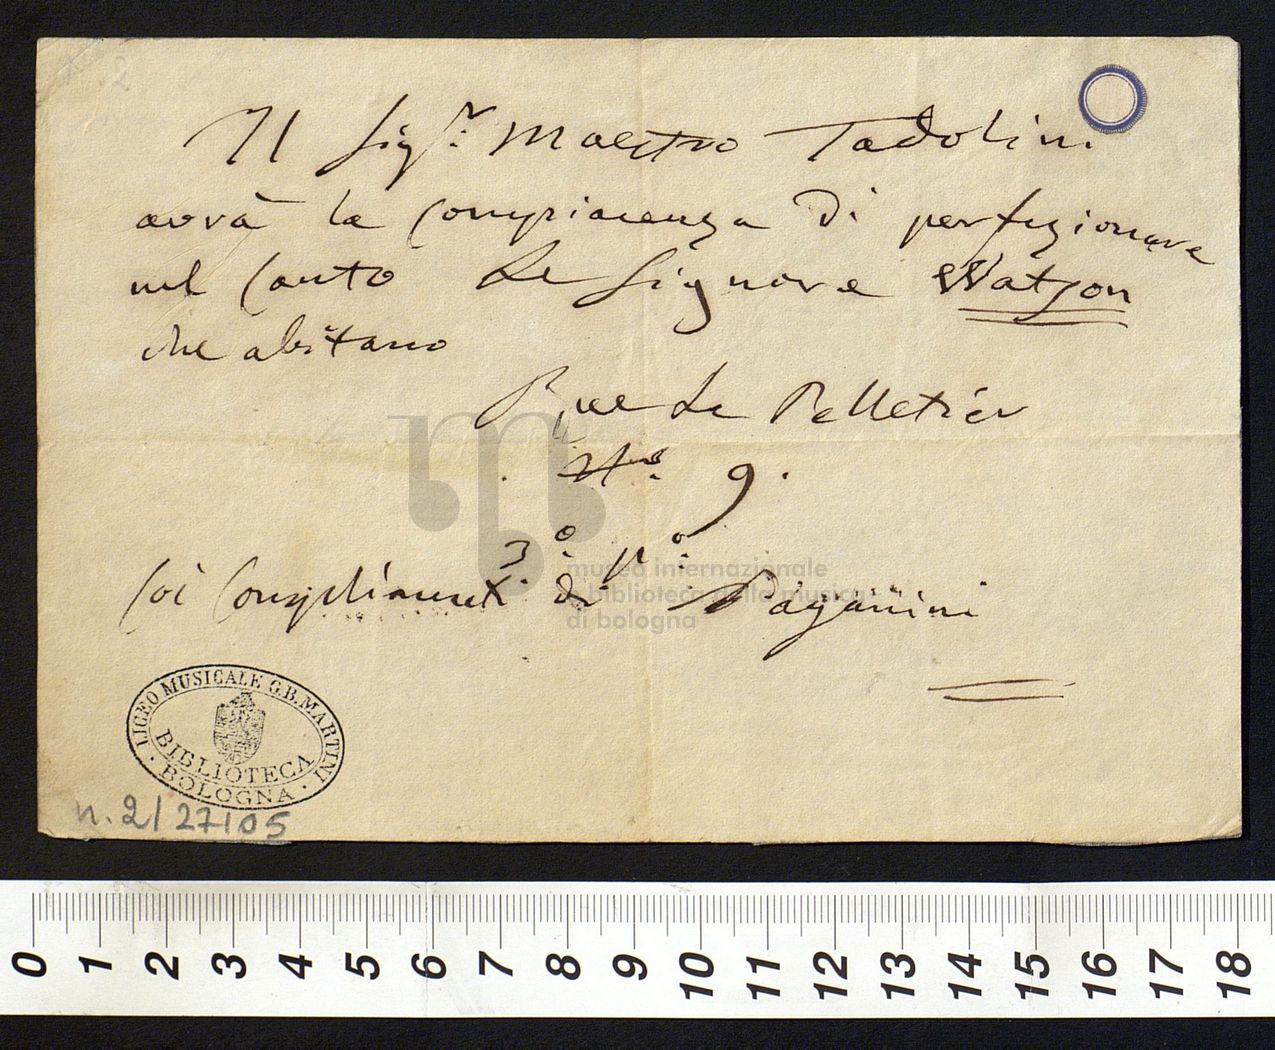 2
Il Sig.r Maestro Tadolini
avrà la compiacenza di perfezionare
nel Canto Le Signore Watson
che abitano
Rue Le Pelletier
N.o 9.
3.o p.o
Coi Complimenti di Paganini
museo internazionale
e biblioteca della musica
di bologna
LICEO MUSICALE G.B. MARTINI
BIBLIOTECA
· BOLOGNA ·
n. 2/27105
0 1 2 3 4 5 6 7 8 9 10 11 12 13 14 15 16 17 18